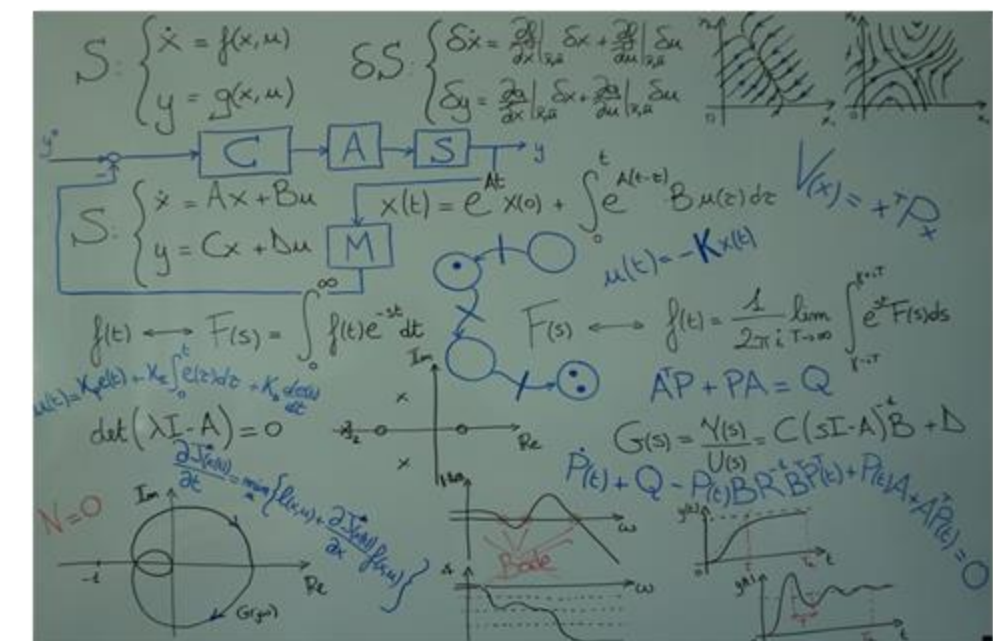 S: { ẋ = f(x,u)
y = g(x,u)
δS: { δẋ = ∂f/∂x|x̄,ū δx + ∂f/∂u|x̄,ū δu
δy = ∂g/∂x|x̄,ū δx + ∂g/∂u|x̄,ū δu
y° - C A S y
M
S: { ẋ = Ax + Bu
y = Cx + Du
x(t) = e^At x(0) + ∫₀^t e^A(t-τ) B u(τ) dτ
V(x) = x^T P x
u(t) = -K x(t)
f(t) ⟷ F(s) = ∫₀^∞ f(t) e^-st dt
F(s) ⟷ f(t) = 1/2πi lim T→∞ ∫γ-iT^γ+iT e^st F(s) ds
u(t) = Kp e(t) + KI ∫₀^t e(τ) dτ + KD de(t)/dt
A^T P + PA = Q
det(λI - A) = 0
Im
Re
G(s) = Y(s)/U(s) = C(sI-A)^-1 B + D
∂J°(x,t)/∂t = min u { l(x,u) + ∂J°(x,t)/∂x f(x,u) }
Ṗ(t) + Q - P(t)BR^-1B^T P(t) + P(t)A + A^T P(t) = 0
N=0
Im
-1
Re
G(jω)
ω
Bode
ω
y(t)
t
0
y(t)
t